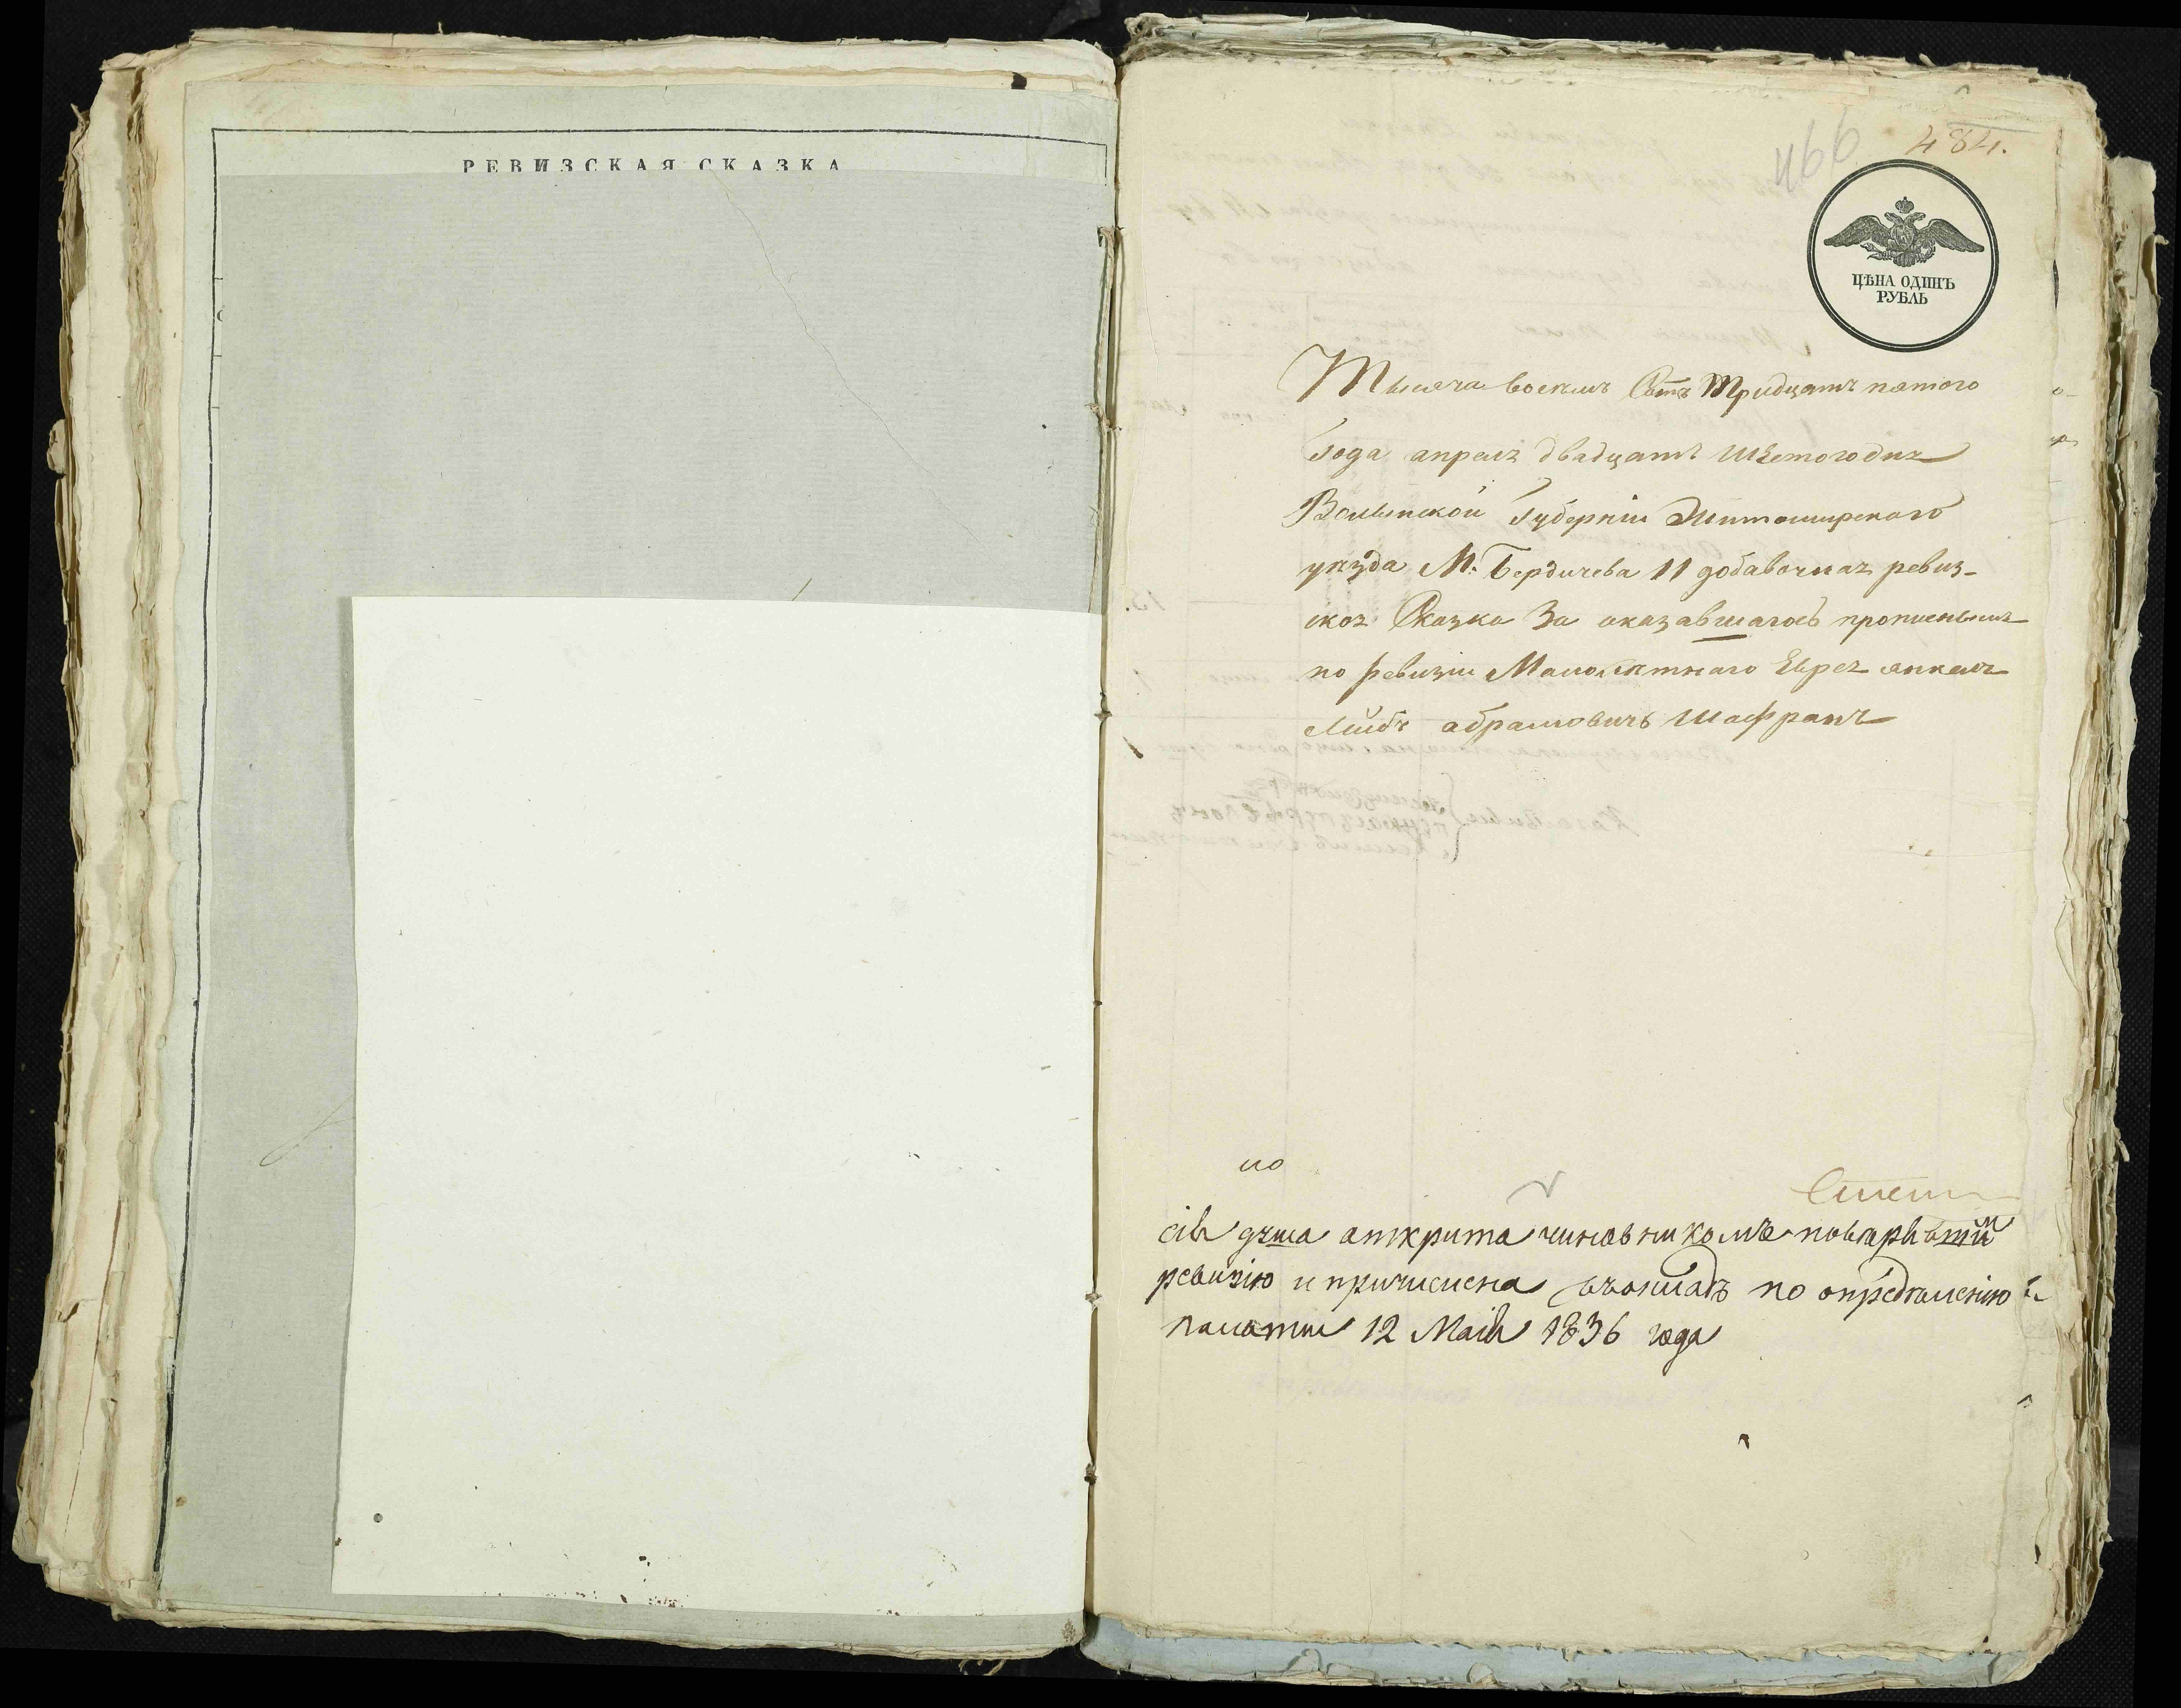 РЕВИЗСКАЯ СКАЗКА
466
484.
ЦѢНА ОДИНЪ
РУБЛЬ
Тысяча восемъ Сотъ Тридцать пятого
Года апреля двадцать шестого дня
Волынской Губерніи Житомирского
уезда М. Бердичева 11 добавочная ревиз-
ская Сказка За оказавшагось прописнымъ
по ревизіи Малолѣтнаго Еврея янкеля
Лейбъ абрамовичъ Шафранъ
но
сія душа открита чиновникомъ поверявшим
ревизію и причислена въокладъ по определенію
палати 12 Маія 1836 года